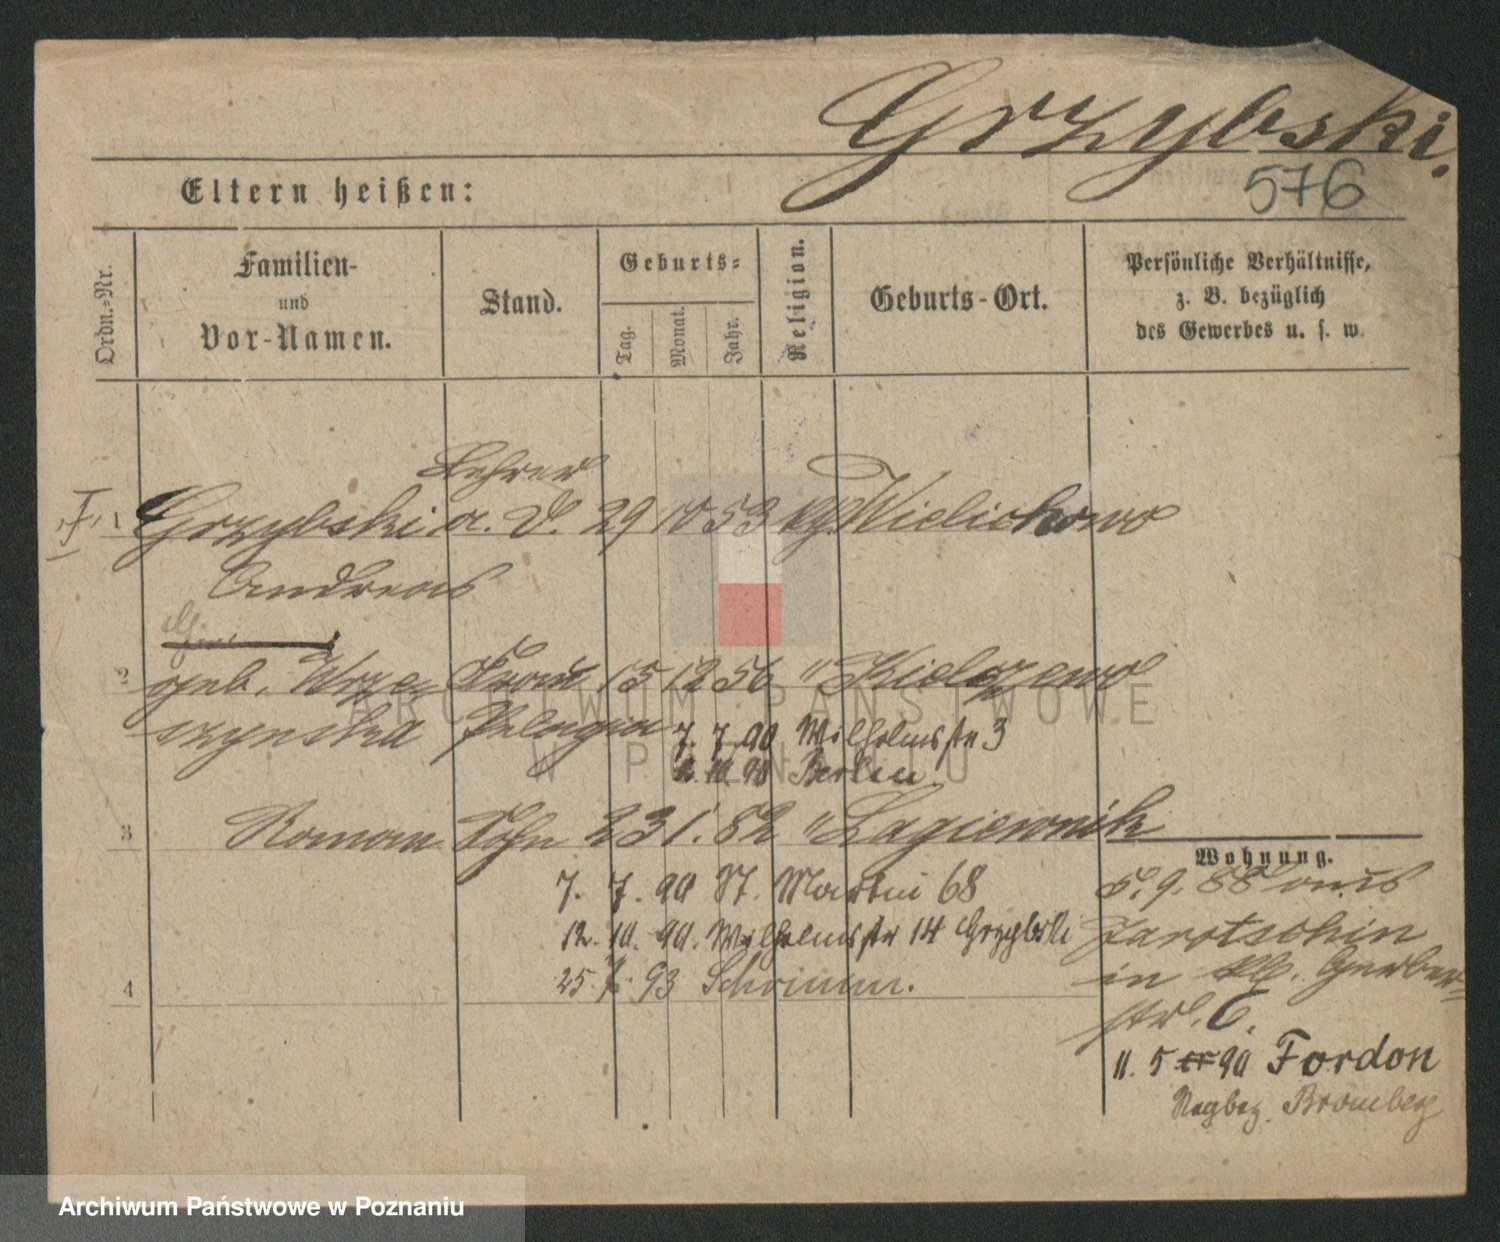 Grzybski.
576
Eltern heißen:
Ordn.-Nr.
Familien-
und
Vor-Namen.
Stand.
Geburts=
Tag.
Monat.
Jahr.
Religion.
Geburts-Ort.
Persönliche Verhältnisse,
z. B. bezüglich
des Gewerbes u. s. w.
Lehrer
1 Grzybski a. D. 29 10 53 kg Wielichowo
Andreas
2 geb. Wrze= Frau 15 12 56 " Kielczewo
szynska Pelagia 7. 7. 90 Wilhelmsstr 3
10 90 Berlin
3 Roman Sohn 23 1. 82 " Lagiewnik
Wohnung.
7. 7. 90 St. Martin 68
12. 10. 90. Wilhelmsstr 14 Grzybski
4 25. 7. 93 Schrimm.
5. 9. 88 aus
Jarotschin
in Gerber=
str. 6.
11. 5 90 Fordon
Regbez. Bromberg
ARCHIWUM PAŃSTWOWE
W POZNANIU
Archiwum Państwowe w Poznaniu